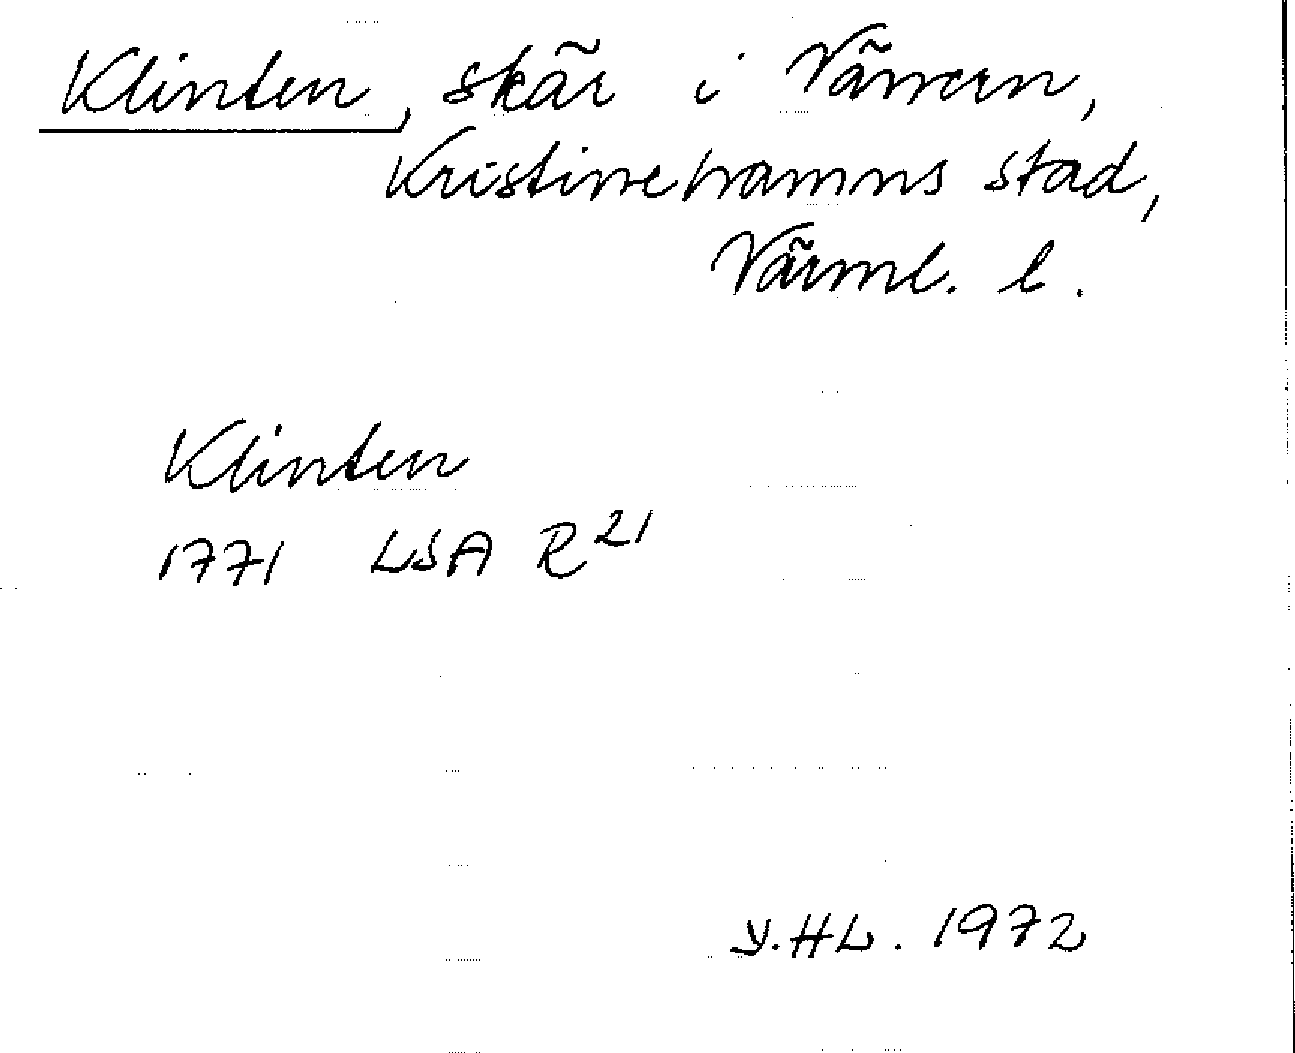 Klinten, skär i Vänern,
Kristinehamns stad,
Värml. l.
Klinten
1771 LSA R21
Y.HL. 1972